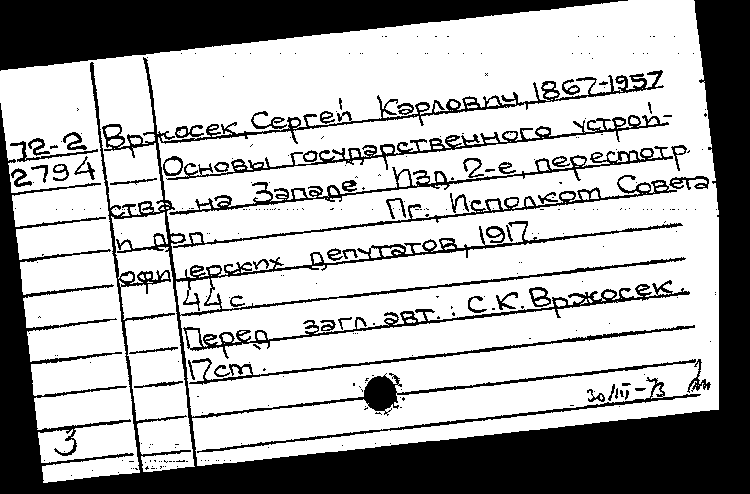 72-2 Вржосек, Сергей Карлович, 1867-1957
2794 Основы государственного устрой-
ства на Западе. Изд. 2-е, пересмотр.
и доп. Пг., Исполком Совета
офицерских депутатов, 1917.
44 с.
Перед загл. авт.: С.К. Вржосек.
17см.
30/III-73
3